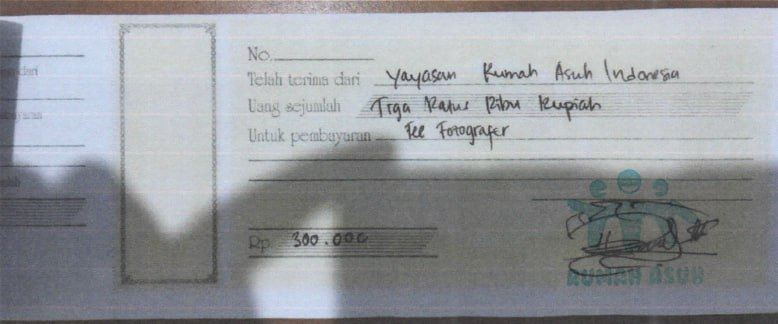 No.
Telah terima dari Yayasan Rumah Asuh Indonesia
Uang sejumlah Tiga Ratus Ribu Rupiah
Untuk pembayaran Fee Fotografer
Rp. 300.000
RUMAH ASUH